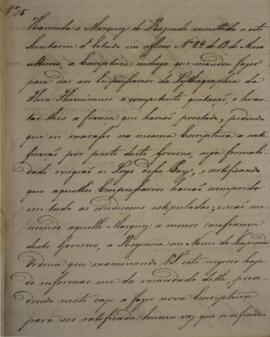 Nº 15
Havendo o Marquez de Rezende remettido a esta
Secretaria d'Estado em officio Nº 89 de 13 de Maio
ultimo, a Escriptura inclusa que mandou fazer
para dar aos Emprezarios da Lythographia da
Flora Fluminense a competente quitação, e levan-
tar-lhes a fiança que havião prestado, pedindo
que eu exarasse na mesma Escriptura a ra-
tificação por parte deste Governo, cuja formali-
dade exigião as Leys desse Paiz, e certificando
que aquelles Emprezarios havião cumprido
em tudo as condiçoens estipuladas; e não me-
recendo aquelle Marquez a menor confiança
deste Governo, a Regencia em Nome do Imperador
Ordena que examinando VS. este negocio haja
de informar-me da veracidade delle, proce-
dendo neste caso a fazer nova Escriptura
para ser ratificada huma vez que o refiro